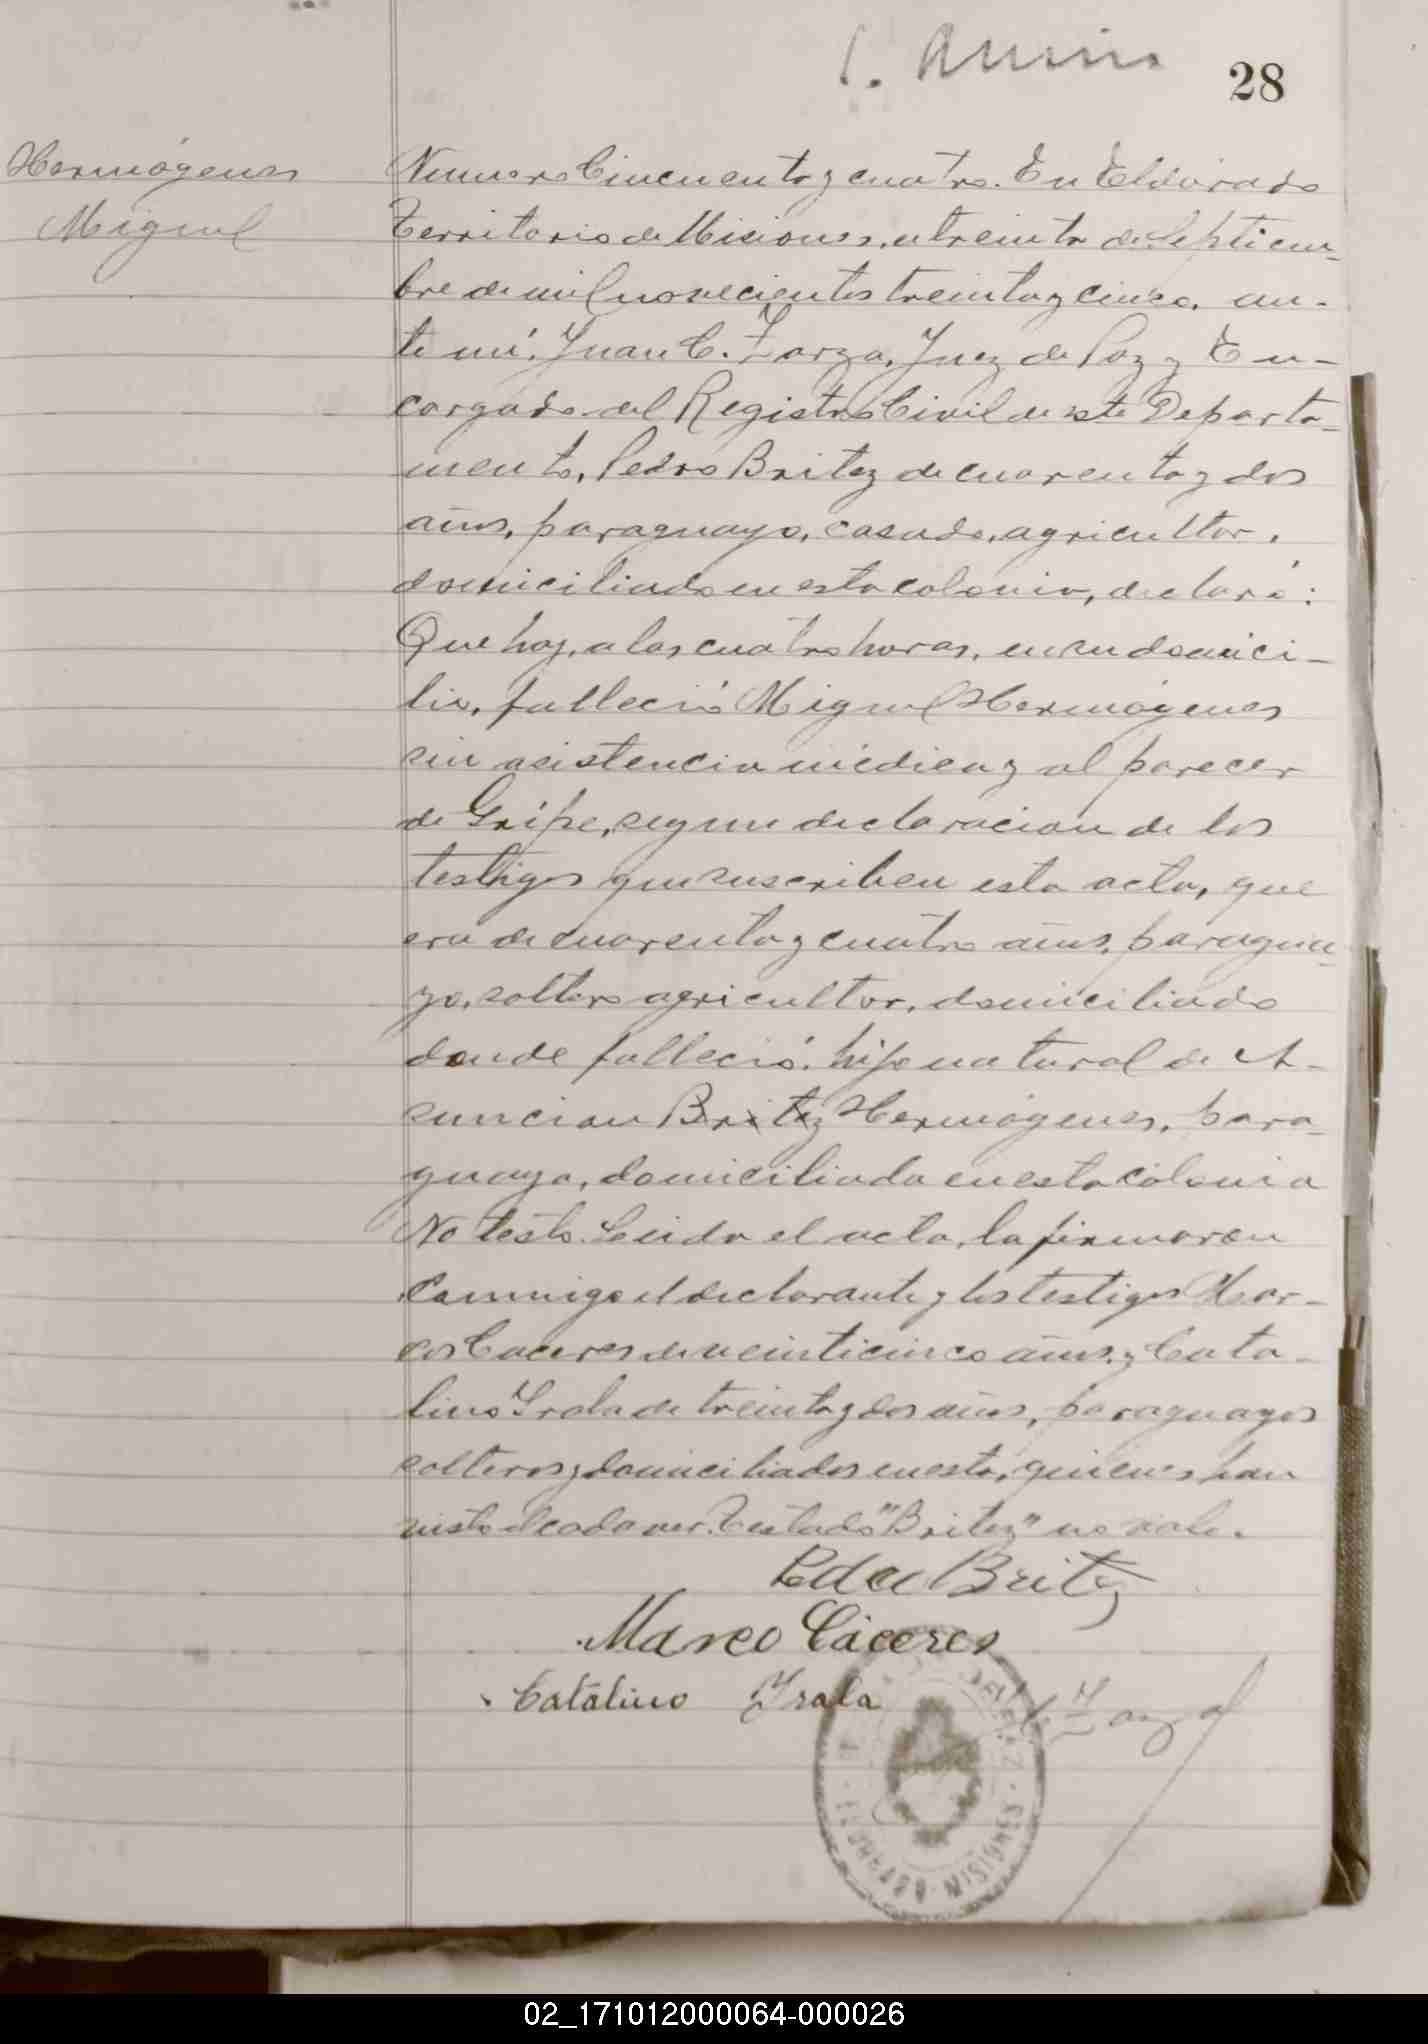 28
Hermógenes
Miguel
Numero Cincuenta y cuatro. En Eldorado
Territorio de Misiones, a treinta de Septiem-
bre de mil novecientos treinta y cinco, an-
te mí, Juan C. Zarza, Juez de Paz y En-
cargado del Registro Civil de este Departa-
mento, Pedro Britez de cuarenta y dos
años, paraguayo, casado, agricultor,
domiciliado en esta colonia, declaró:
Que hoy, a las cuatro horas, en su domici-
lio, falleció Miguel Hermógenes
sin asistencia médica y al parecer
de Gripe, segun declaracion de los
testigos que suscriben esta acta, que
era de cuarenta y cuatro años, paragua-
yo, soltero agricultor, domiciliado
donde falleció, hijo natural de A-
suncion Britez Hermógenes, para-
guaya, domiciliada en esta colonia
No testó. Leida el acta, la firmaron
conmigo el declarante y los testigos Mar-
cos Caceres de veinticinco años y Cata-
lino Yrala de treinta y dos años, paraguayos
solteros y domiciliados en esta, quienes han
visto el cadaver. Testado "Britez" no vale.
Pedro Britez
Marco Cáceres
Catalino Yrala
C. Zarza
ELDORADO MISIONES
02_171012000064-000026